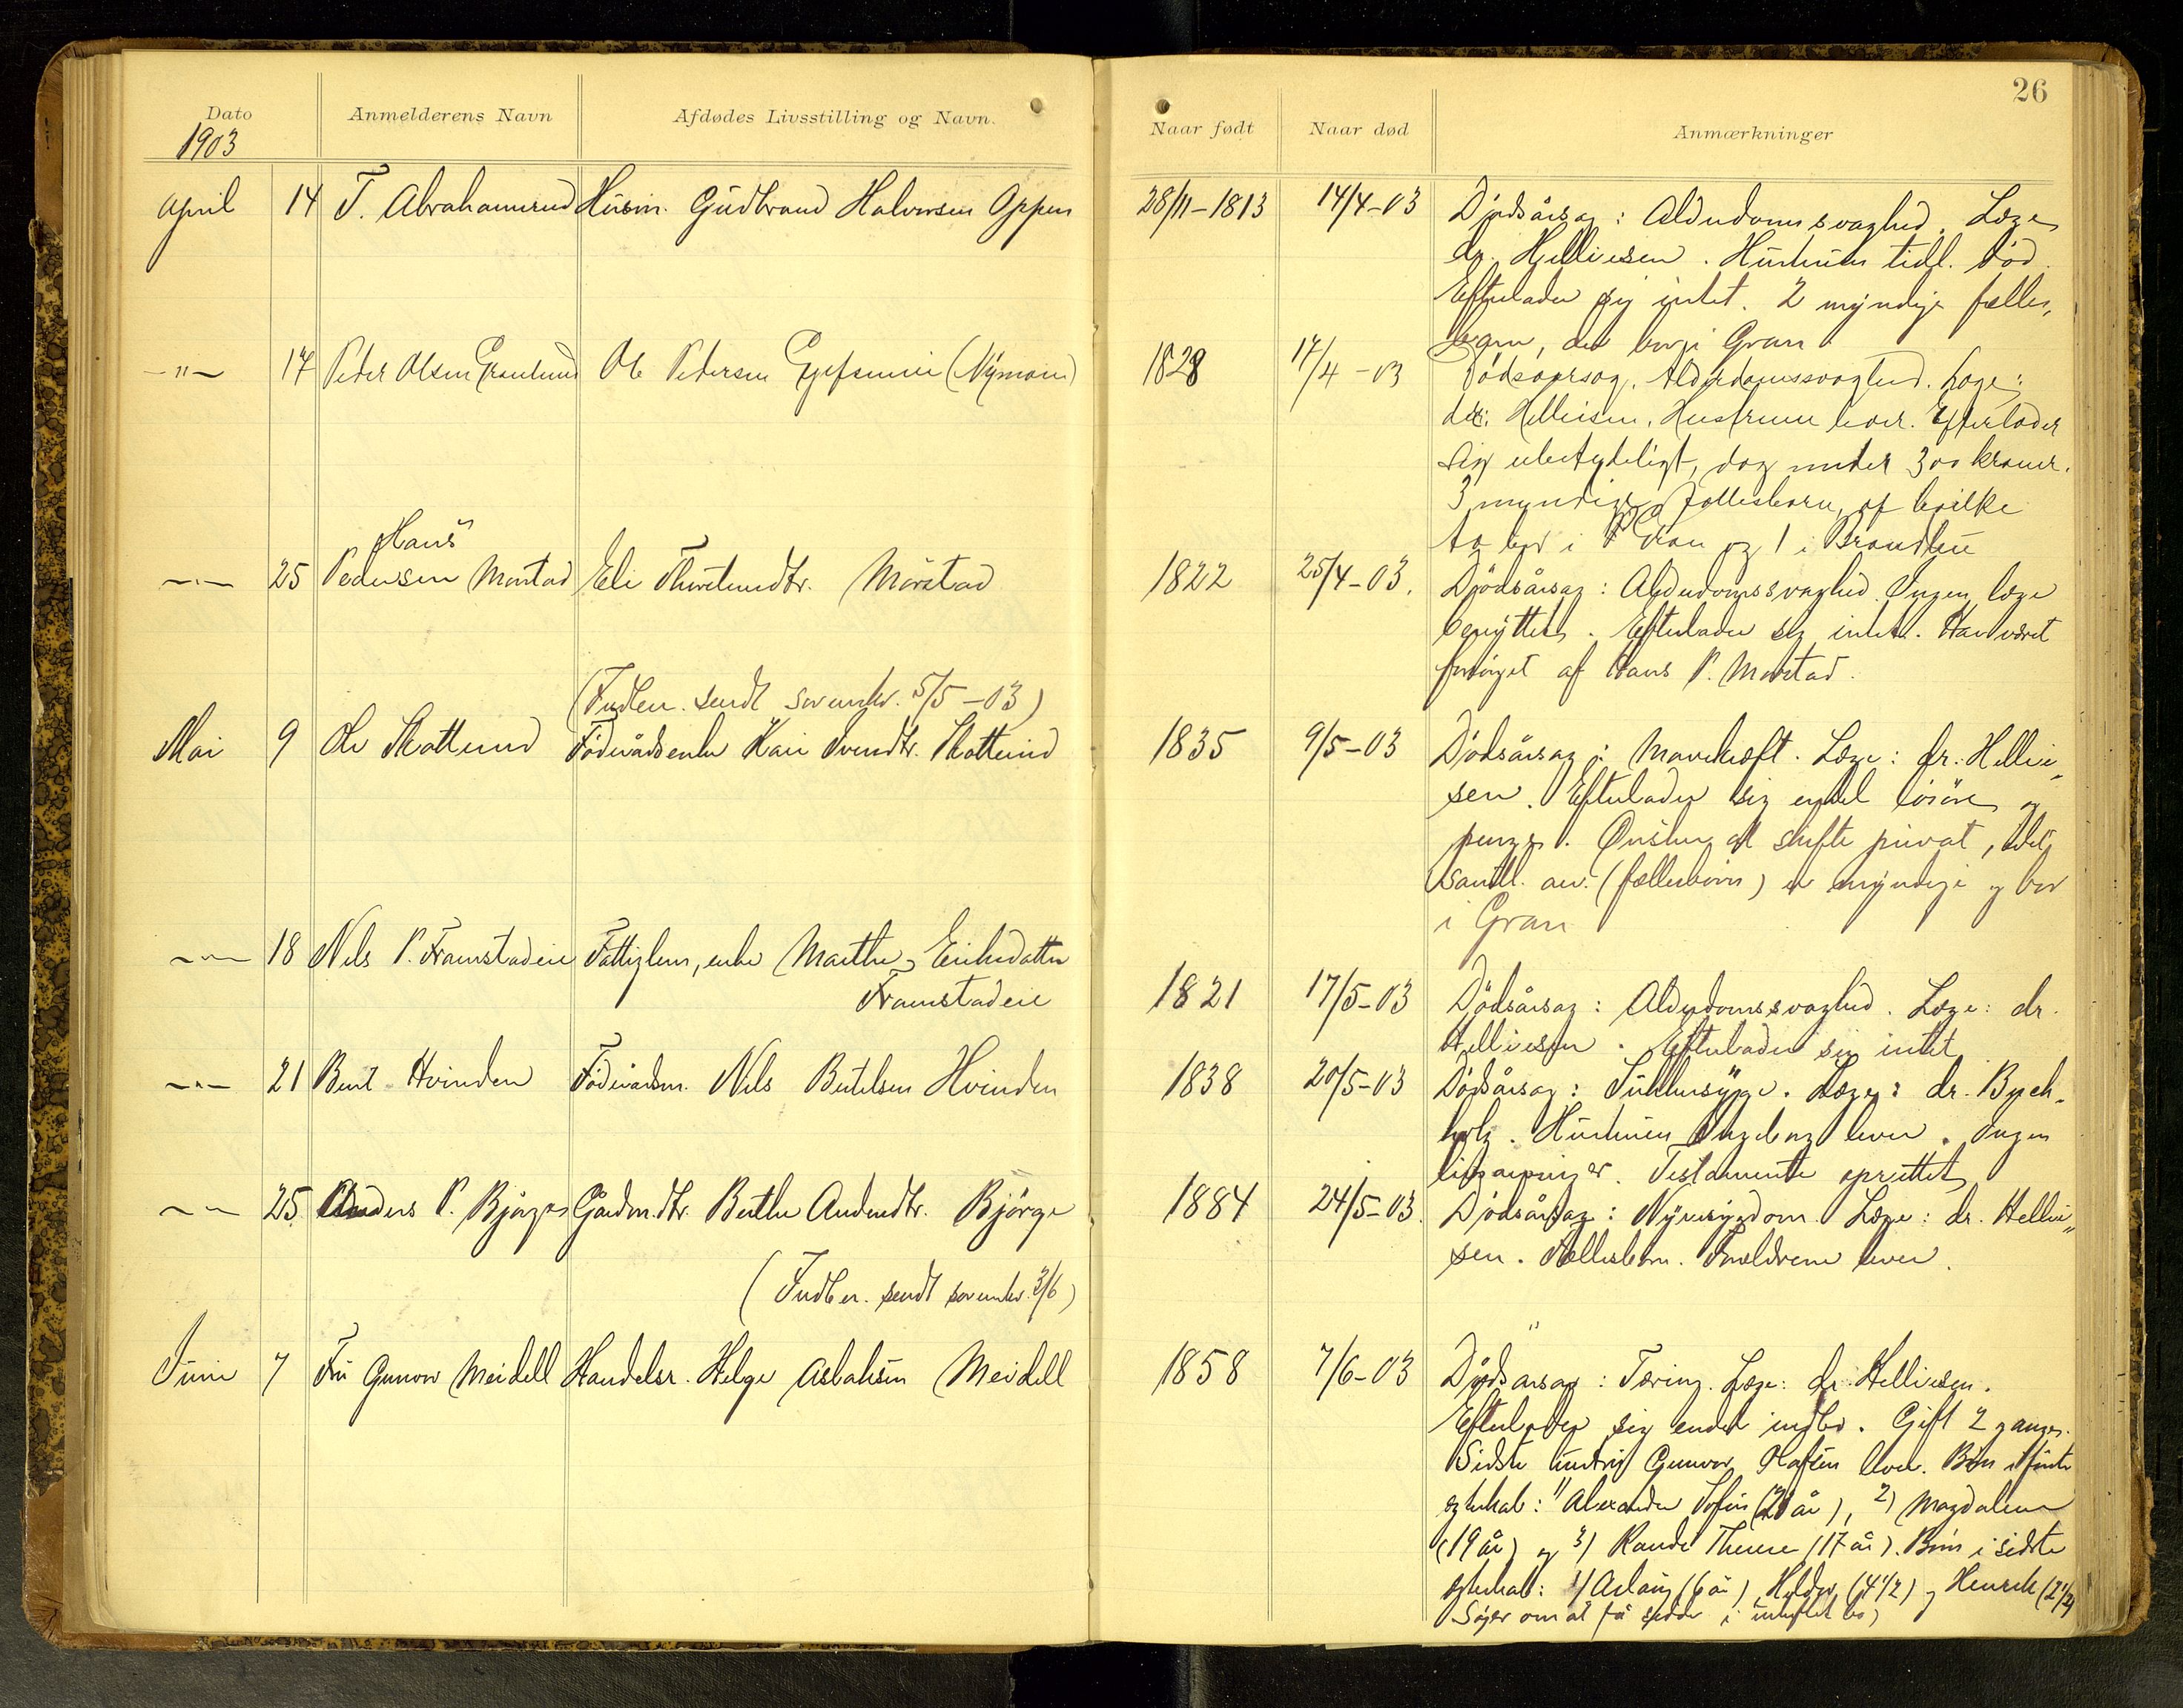 26
Dato
Anmelderens Navn
Afdødes Livsstilling og Navn.
Naar født
Naar død
Anmærkninger
1903
April 14 T. Abrahamsrud Husm. Gudbrand Halvorsen Oppen 28/11-1813 14/4-03 Dödsårsag: Alderdomssvaghed. Læge
dr. Helliesen. Hustruen tidl. död.
Efterlader sig intet. 2 myndige fælles-
barn, der bor i Gran.
-"- 17 Peder Olsen Granlund Ole Pedersen (Nymoen) 1828 17/4-03 Dödsaarsag. Alderdomssvaghed. Læge:
dr. Helliesen. Hustruen lever. Efterlader
sig ubetydeligt, dog under 300 kroner.
3 myndige fællesbørn, af hvilke
to bor i Gran og 1 i Brandbu
-"- 25 Hans
Pedersen Morstad Eli Thorstensdtr. Morstad 1822 25/4-03. Dödsårsag: Alderdomssvaghed. Ingen læge
benyttet. Efterlader sig intet. Har været
forsörget af Hans P. Morstad.
(Indber. sendt sorenskr. 5/5-03)
Mai 9 Ole Skattum Föderådsenke Kari Svendtr. Skattum 1835 9/5-03 Dödsårsag: Mavekræft. Læge: dr. Hellie-
sen. Efterlader sig endel lösöre og
penge. Önsker at skifte privat, idet
samtl. arv. (fællesbörn) er myndige og bor
i Gran
-"- 18 Nils P. Framstadeie Fattiglem, enke Marthe Eriksdatter
Framstadeie
1821 17/5-03 Dödsårsag: Alderdomssvaghed. Læge: dr.
Helliesen. Efterlader sig intet
-"- 21 Bert Hvinden Föderådsm. Nils Bertelsen Hvinden 1838 20/5-03 Dödsårsag: Sukkersyge. Læge: dr. Buch-
holz. Hustruen Ingeborg lever. Ingen
livsarvinger. Testamente oprettet
-"- 25 Anders P. Bjørge Gårdm.dtr. Berthe Andersdtr. Bjørge 1884 24/5-03. Dödsårsag: Nyresygdom. Læge: dr. Hellie-
sen. Fællesbarn. Forældrene lever.
(Indber. sendt sorenskr. 3/6)
Juni 7 Fru Gunvor Meidell Handelsr. Helge Aslaksen Meidell 1858 7/6-03 Dödsårsag: Tæring. Læge: dr. Helliesen.
Efterlader sig endel indbo. Gift 2 ganger.
Sidste hustru Gunvor Olafsen lever. Börn i förste
egteskab: 1) Alexander (21 år), 2) Magdalene
(19 år) og 3) Randi Therese (17 år). Börn i sidste
egteskab: 1) Aslaug (6 år), (4 1/2) og Henrik (2 1/2)
Söger om at få sidde i uskiftet bo)